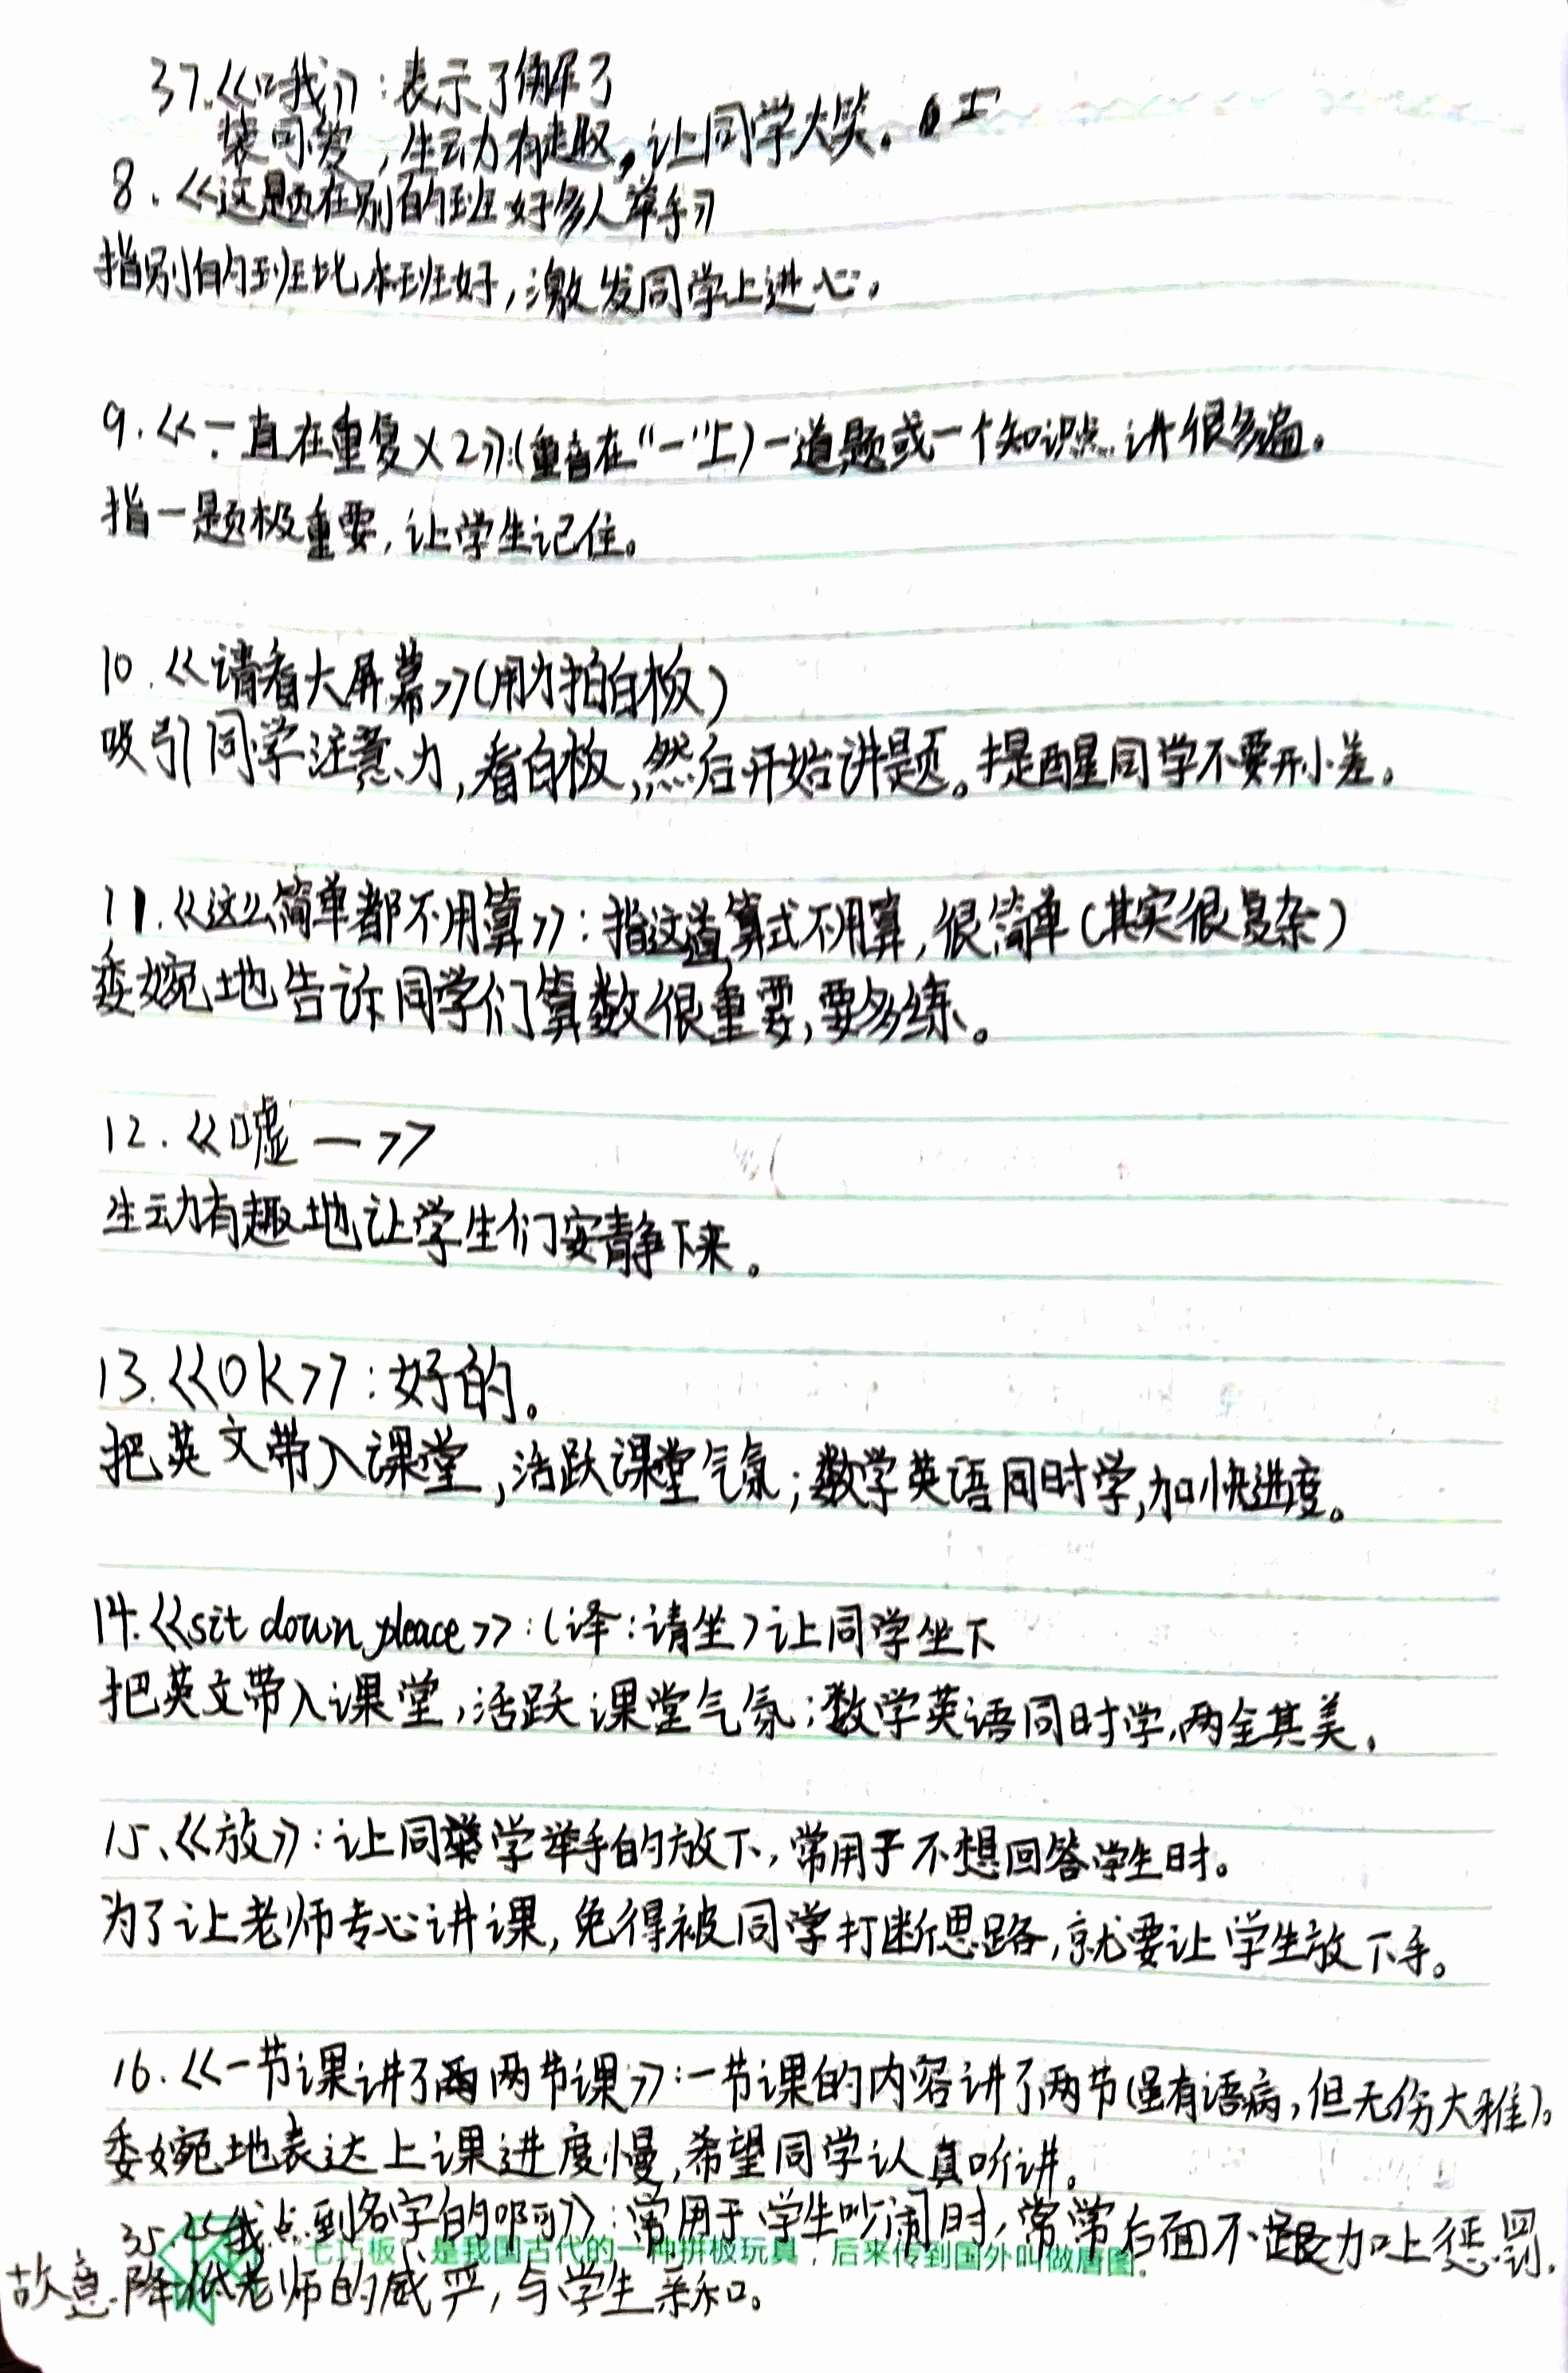 37.《哦》:表示了解了
装可爱,生动有趣,让同学大笑。
8.《这题在别的班好多人举手》
指别的班比本班好,激发同学上进心。
9.《一直在重复×2》:(重音在“一”上)一道题或一个知识点讲很多遍。
指一题极重要,让学生记住。
10.《请看大屏幕》(用力拍白板)
吸引同学注意力,看白板,然后开始讲题。提醒同学不要开小差。
11.《这么简单都不用算》:指这道算式不用算,很简单(其实很复杂)
委婉地告诉同学们算数很重要,要多练。
12.《嘘一》
生动有趣地让学生们安静下来。
13.《OK》:好的。
把英文带入课堂,活跃课堂气氛;数学英语同时学,加快进度。
14.《sit down pleace》:(译:请坐)让同学坐下
把英文带入课堂,活跃课堂气氛;数学英语同时学,两全其美。
15、《放》:让同学举手的放下,常用于不想回答学生时。
为了让老师专心讲课,免得被同学打断思路,就要让学生放下手。
16.《一节课讲了两节课》:一节课的内容讲了两节(虽有语病,但无伤大雅)。
委婉地表达上课进度慢,希望同学认真听讲。
35.《我点到名字的啊》:常用于学生吵闹时,常常后面不跟加上惩罚,
七巧板,是我国古代的一种拼板玩具,后来传到国外叫做唐图。
故意降低老师的威严,与学生亲和。